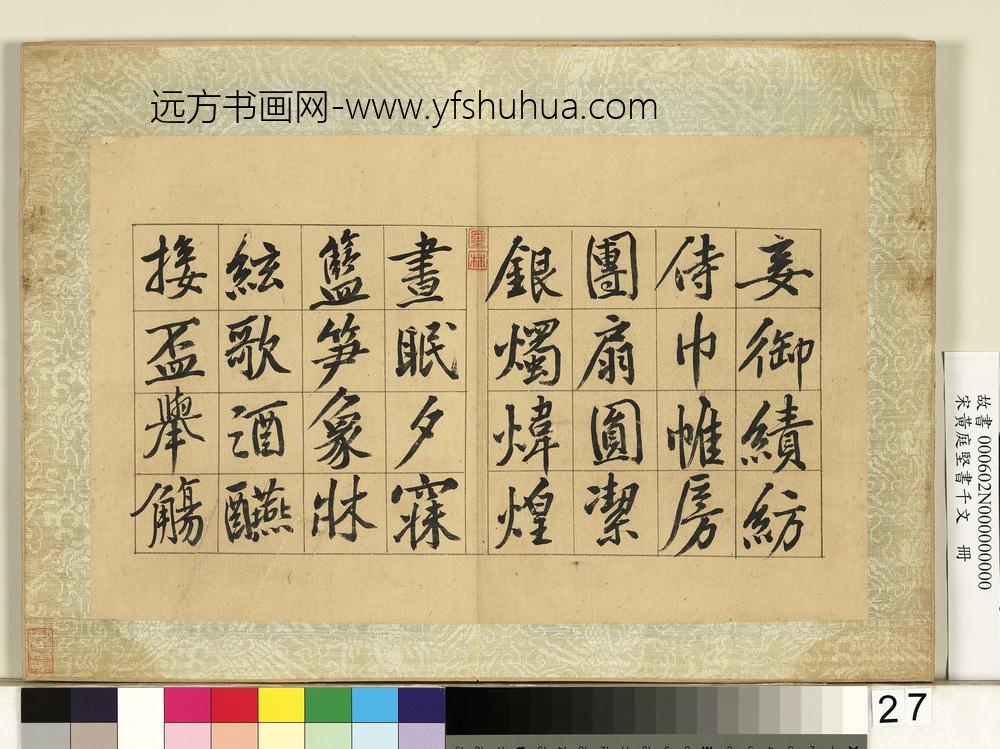 远方书画网-www.yfshuhua.com
妾御績紡
侍巾帷房
團扇圓潔
銀燭煒煌
墨林
晝眠夕寐
籃笋象牀
絃歌酒醼
接盃舉觴
故書 000602N000000000
宋黃庭堅書千文 冊
27